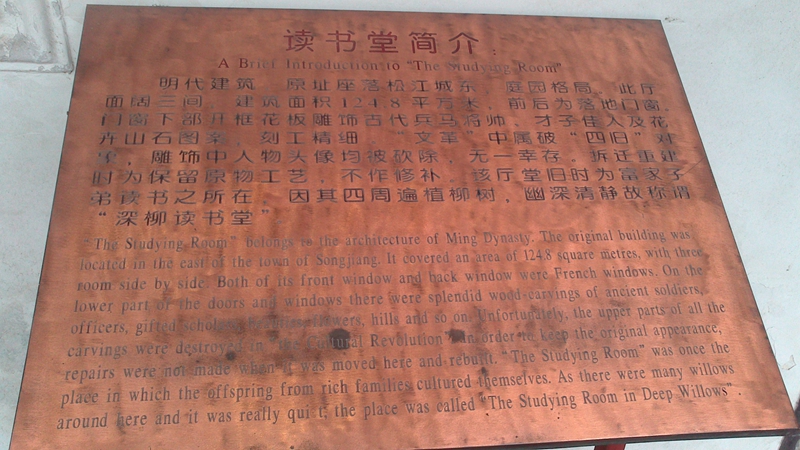 读书堂简介:
A Brief Introduction to "The Studying Room"
明代建筑。原址座落松江城东，庭园格局。此厅
面阔三间，建筑面积124.8平方米，前后为落地门窗。
门窗下部开框花板雕饰古代兵马将帅、才子佳人及花
卉山石图案，刻工精细。“文革”中属破“四旧”对
象，雕饰中人物头像均被砍除，无一幸存。拆迁重建
时为保留原物工艺，不作修补。该厅堂旧时为富家子
弟读书之所在，因其四周遍植柳树，幽深清静故称谓
“深柳读书堂”
"The Studying Room" belongs to the architecture of Ming Dynasty. The original building was
located in the east of the town of Songjiang. It covered an area of 124.8 square metres, with three
room side by side. Both of its front window and back window were French windows. On the
lower part of the doors and windows there were splendid wood-carvings of ancient soldiers,
officers, gifted scholars, beauties, flowers, hills and so on. Unfortunately, the upper parts of all the
carvings were destroyed in "the Cultural Revolution". In order to keep the original appearance,
repairs were not made when it was moved here and rebuilt. "The Studying Room" was once the
place in which the offspring from rich families cultured themselves. As there were many willows
around here and it was really qui t, the place was called "The Studying Room in Deep Willows".